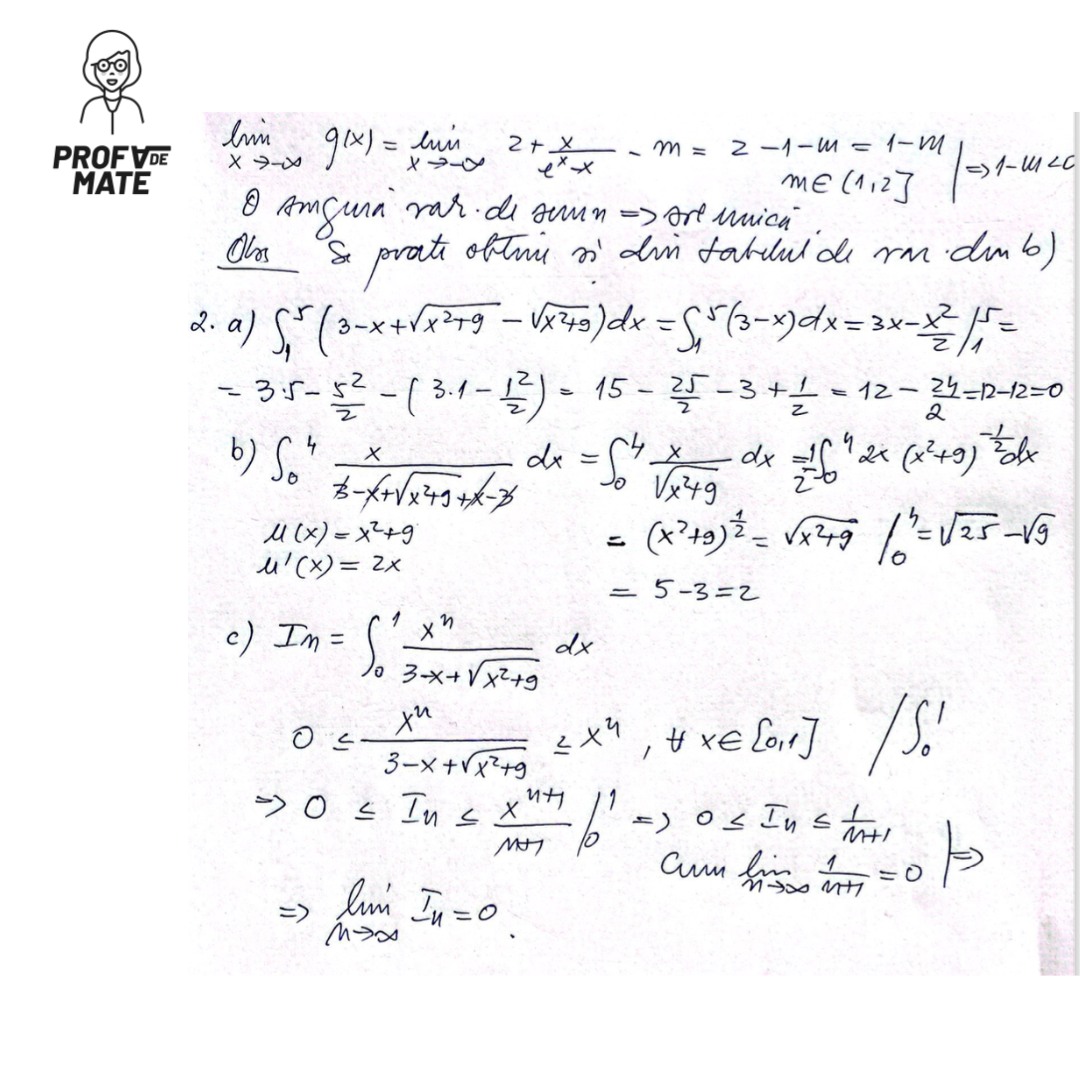 PROF ∀ DE
MATE
lim x→-∞ g(x) = lim x→-∞ 2 + x/(e^x - x) - m = 2 - 1 - m = 1 - m | => 1-m<0
m ∈ (1,2]
O singură var. de semn => sol unică
Obs Se poate obține și din tabelul de var. din b)
2. a) ∫₁⁵ (3-x+√(x²+9) - √(x²+9)) dx = ∫₁⁵ (3-x) dx = 3x - x²/2 /₁⁵ =
= 3·5 - 5²/2 - (3·1 - 1²/2) = 15 - 25/2 - 3 + 1/2 = 12 - 24/2 = 12-12=0
b) ∫₀⁴ x/(3-x+√(x²+9)+x-3) dx = ∫₀⁴ x/√(x²+9) dx = 1/2 ∫₀⁴ 2x (x²+9)^(-1/2) dx
u(x) = x²+9 = (x²+9)^(1/2) = √(x²+9) /₀⁴ = √25 - √9
u'(x) = 2x
= 5-3=2
c) In = ∫₀¹ xⁿ/(3-x+√(x²+9)) dx
0 ≤ xⁿ/(3-x+√(x²+9)) ≥ xⁿ, ∀ x∈[0,1] /∫₀¹
=> 0 ≤ In ≤ x^(n+1)/(n+1) /₀¹ => 0 ≤ In ≤ 1/(n+1)
Cum lim n→∞ 1/(n+1) = 0 | =>
=> lim n→∞ In = 0.